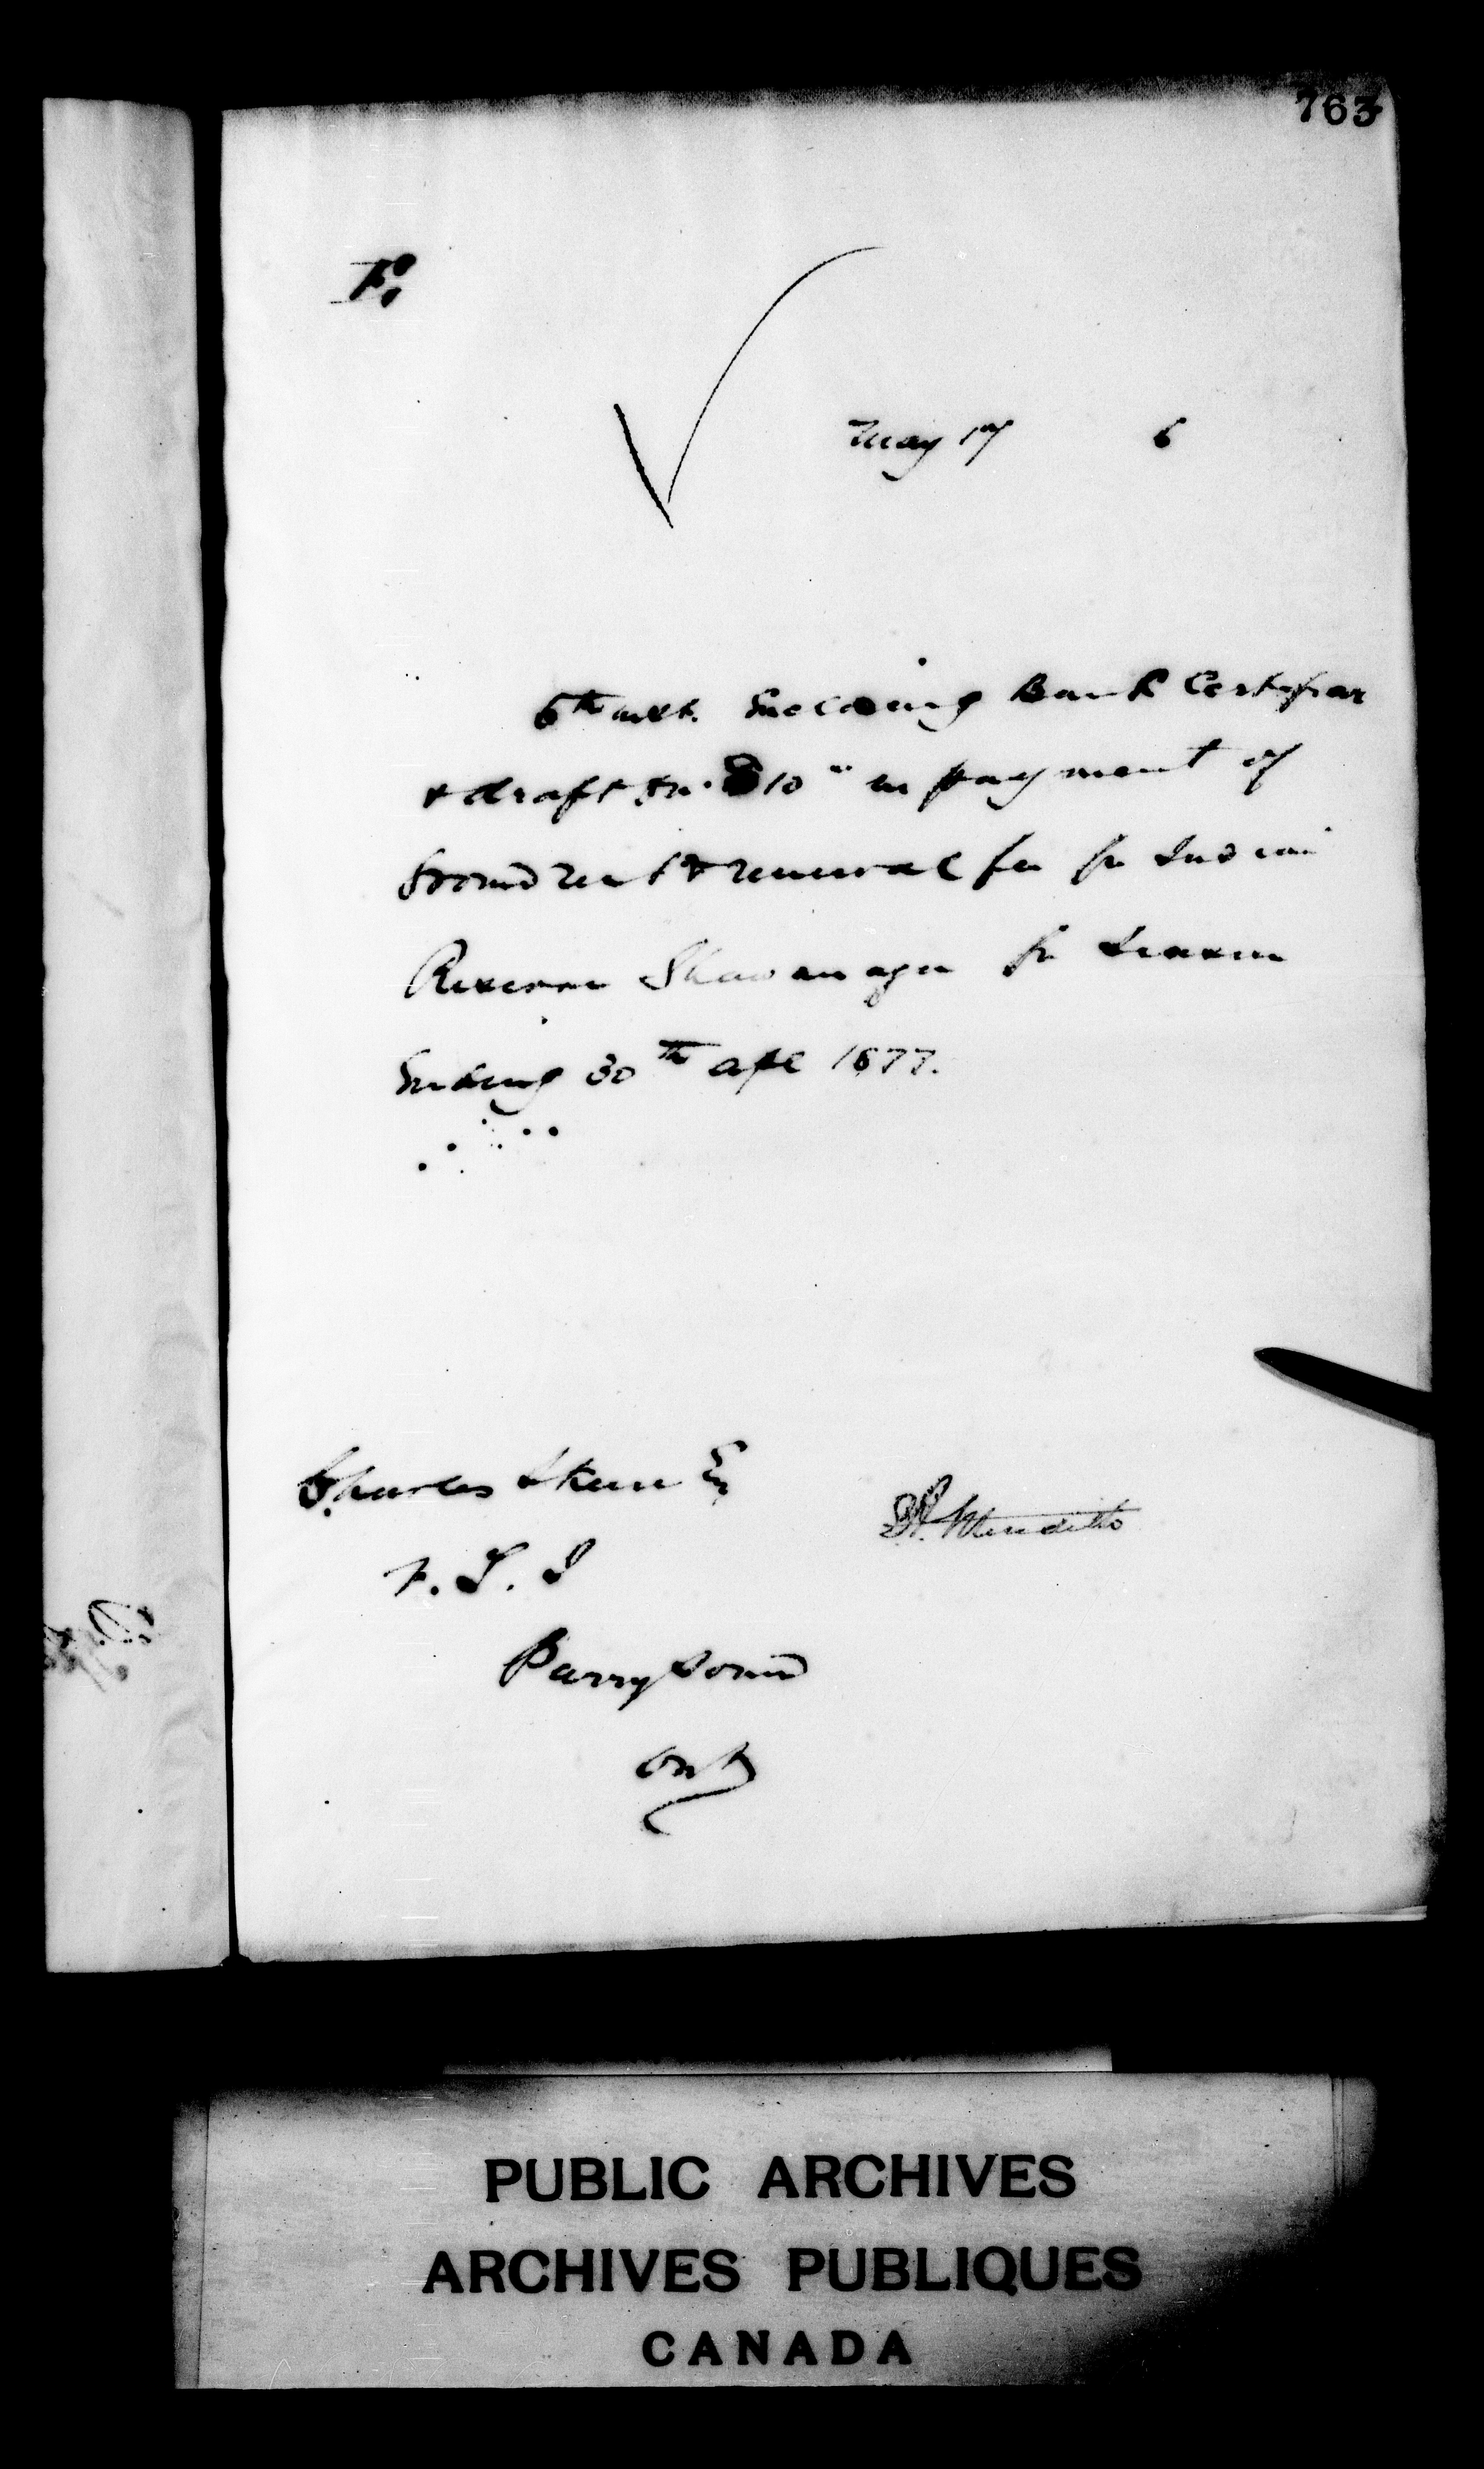 763
May 17 6
6th inst. Enclosing Bank Certificate
& draft for $10 in payment of
Ground rent & renewal fee for Indian
Reserve Shawanaga for Season
Ending 30th Apl 1877.
Charles Skene Esq
V. S. I
Parry Sound
Ont
Meredith
PUBLIC ARCHIVES
ARCHIVES PUBLIQUES
CANADA